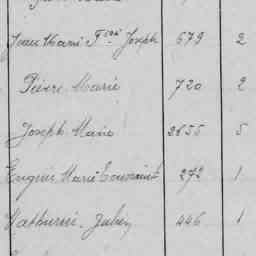 Jean Marie F.cois Joseph 679 2
Pierre Marie 720 2
Joseph Marie 2655 5
Eugène Marie Toussaint 272 1
Mathurin Julien 446 1